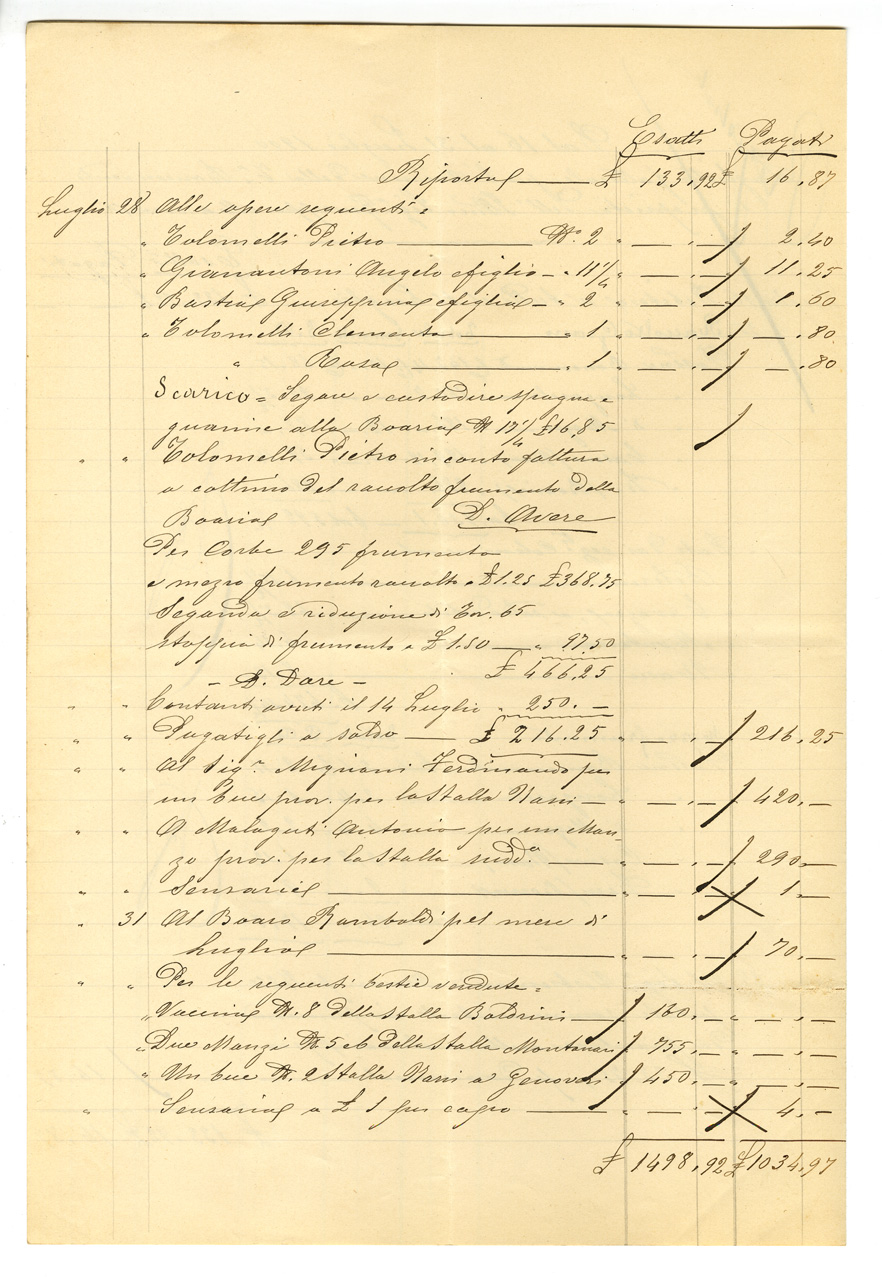 Esatti Pagati
Riporto £ 133.92 £ 16.87
Luglio 28 Alle opere seguenti =
" Tolomelli Pietro N.° 2 " — . — 2.40
" Gianantoni Angelo e figlio — " 11 1/4 " — . — 11.25
" Bastia Giuseppina e figlia — " 2 " — . — 1.60
" Tolomelli Clementa " 1 " — . — — .80
" Rosa " 1 " — . — — .80
Scarico = Segare e custodire spagna e
guarine alla Boaria N 17 1/4 £ 16.85
" " Tolomelli Pietro in conto fattura
a cottimo del raccolto frumento della
Boaria D. Avere
Per Corbe 295 frumento
e mezzo frumento raccolto a £ 1.25 £ 368.75
Seganda e riduzione di Tor. 65
stoppia di frumento a £ 1.50 — " 97.50
£ 466.25
- D. Dare -
" " Contanti avuti il 14 Luglio " 250. —
" " Pagatigli a saldo — £ 216.25 " — . — 216.25
" " Al Sig.r Mignani Ferdinando per
un bue prov. per la Stalla Nani — " — . — 420. —
" " A Malaguti Antonio per un Man-
zo prov. per la Stalla sudd.a — " — . — 290 —
" " Sensarie " — . — 1. —
" 31 Al Boaro Ramboldi pel mese di
Luglio " — . — 70. —
" " Per le seguenti bestie vendute =
" Vaccina N. 8 della Stalla Boldrini — 160. — " — . —
" Due Manzi N. 5 e 6 della Stalla Montanari 755. — " — . —
" Un bue N. 2 Stalla Nani a Genovesi 450. — " — . —
" Sensaria a £ 1 per capo " — . — 4. —
£ 1498.92 £ 1034.97